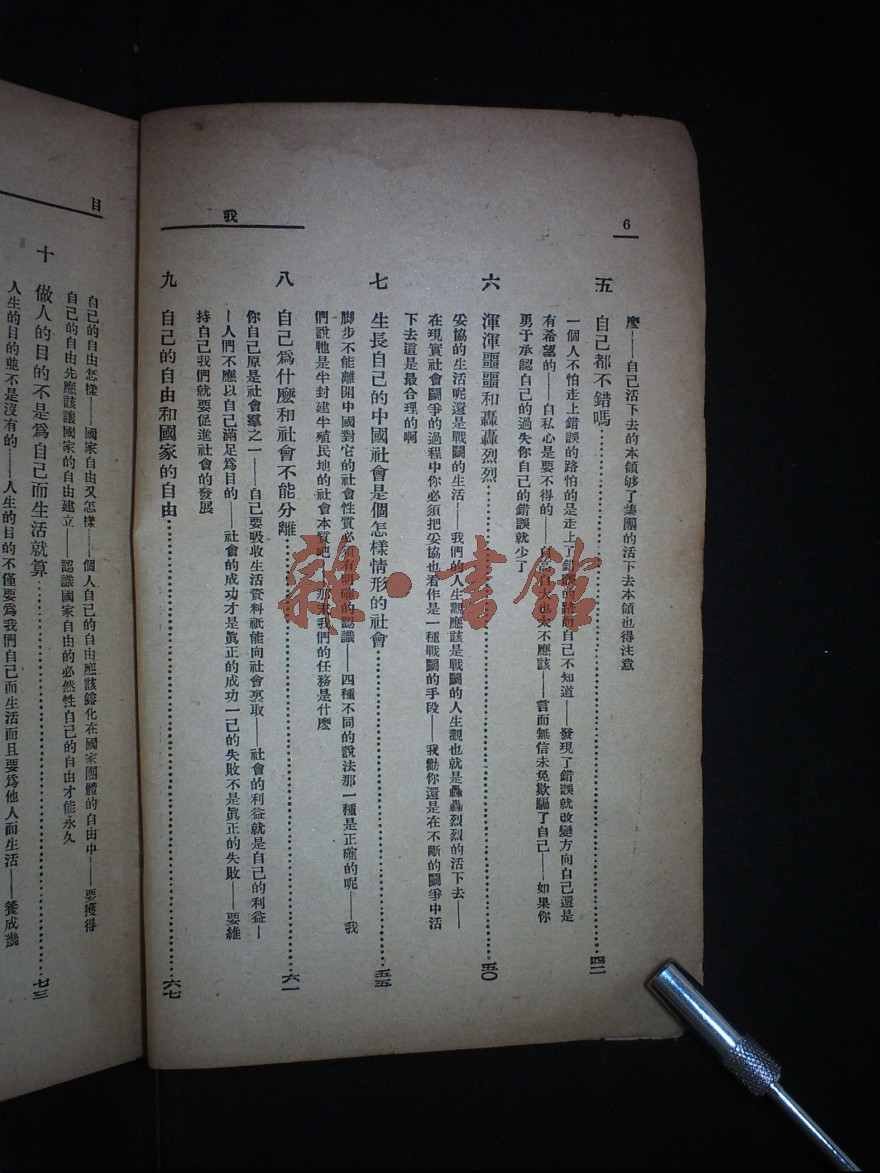 6
我
麼——自己活下去的本領够了集團的活下去本領也得注意
五　自己都不錯嗎……四二
一個人不怕走上錯誤的路怕的是走上了錯誤的路而自己不知道——發現了錯誤就改變方向自己還是
有希望的——自私心是要不得的——自高自大也大不應該——言而無信未免欺騙了自己——如果你
勇于承認自己的過失你自己的錯誤就少了
六　渾渾噩噩和轟轟烈烈……五〇
妥協的生活呢還是戰鬭的生活——我們的人生觀應該是戰鬭的人生觀也就是轟轟烈烈的活下去——
在現實社會鬭爭的過程中你必須把妥協也看作是一種戰鬭的手段——我勸你還是在不斷的鬭爭中活
下去這是最合理的啊
七　生長自己的中國社會是個怎樣情形的社會……五五
脚步不能離開中國對它的社會性質必須有明確的認識——四種不同的說法那一種是正確的呢——我
們說牠是半封建半殖民地的社會本質吧——那末我們的任務是什麽
八　自己爲什麽和社會不能分離……六一
你自己原是社會羣之一——自己要吸收生活資料祇能向社會裏取——社會的利益就是自己的利益—
—人們不應以自己滿足爲目的——社會的成功才是眞正的成功一己的失敗不是眞正的失敗——要維
持自己我們就要促進社會的發展
九　自己的自由和國家的自由……六七
目
自己的自由怎樣——國家自由又怎樣——個人自己的自由應該鎔化在國家團體的自由中——要獲得
自己的自由先應該讓國家的自由建立——認識國家自由的必然性自己的自由才能永久
十　做人的目的不是爲自己而生活就算……七三
人生的目的並不是沒有的——人生的目的不僅要爲我們自己而生活而且要爲他人而生活——養成
雜·書館